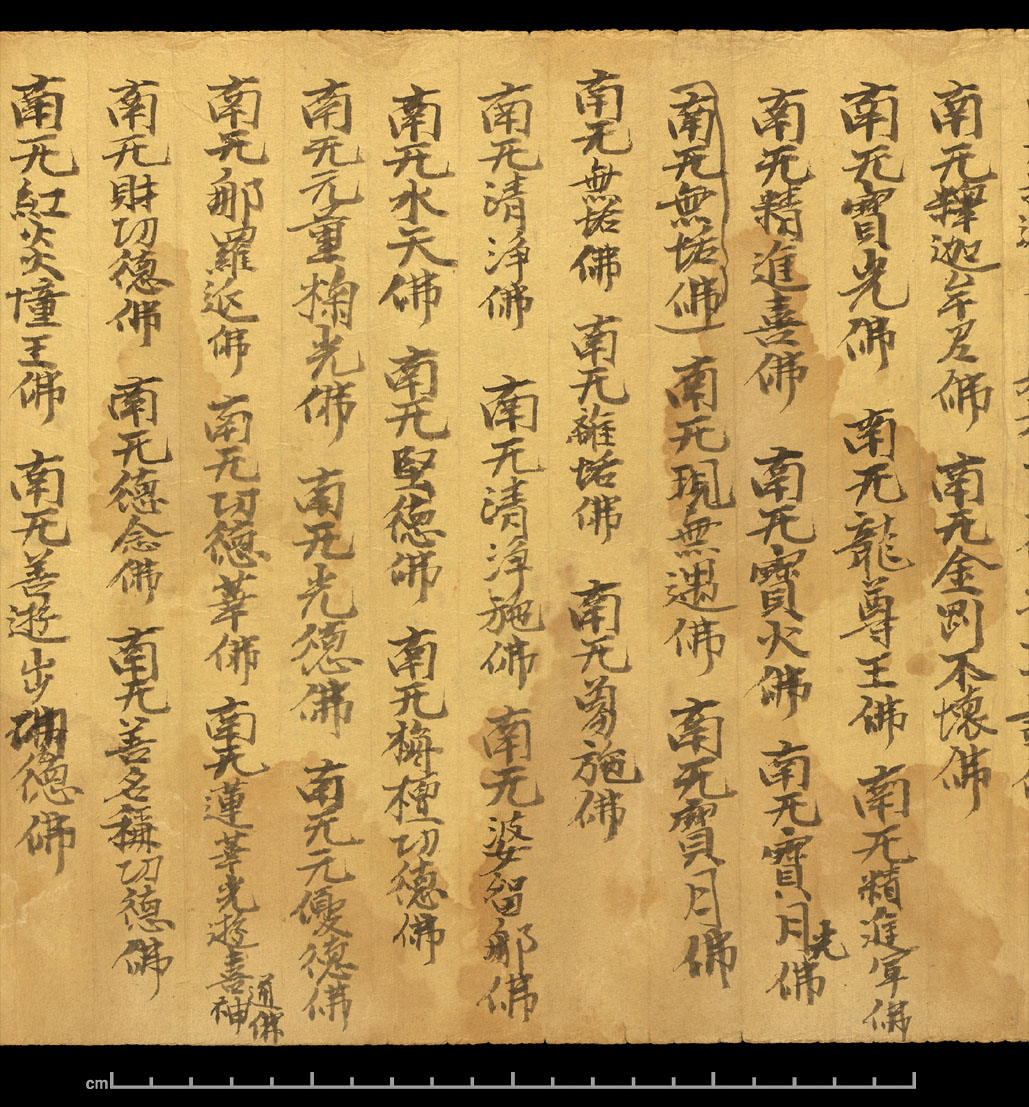 南无釋迦牟尼佛 南无金剛不壞佛
南无寶光佛 南无龍尊王佛 南无精進軍佛
南无精進喜佛 南无寶火佛 南无寶月光佛
南无無垢佛 南无現無遇佛 南无寶月佛
南无無垢佛 南无離垢佛 南无勇施佛
南无清淨佛 南无清淨施佛 南无婆留那佛
南无水天佛 南无堅德佛 南无栴檀功德佛
南无元量掬光佛 南无光德佛 南无元憂德佛
南无那羅延佛 南无功德華佛 南无蓮華光遊喜神通佛
南无財功德佛 南无德念佛 南无善名稱功德佛
南无紅炎幢王佛 南无善遊步德佛
cm